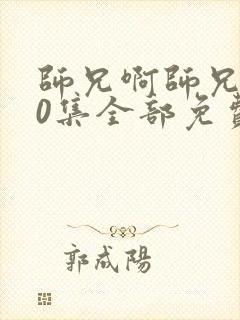 師兄啊師兄
0集全部免
郭咸陽